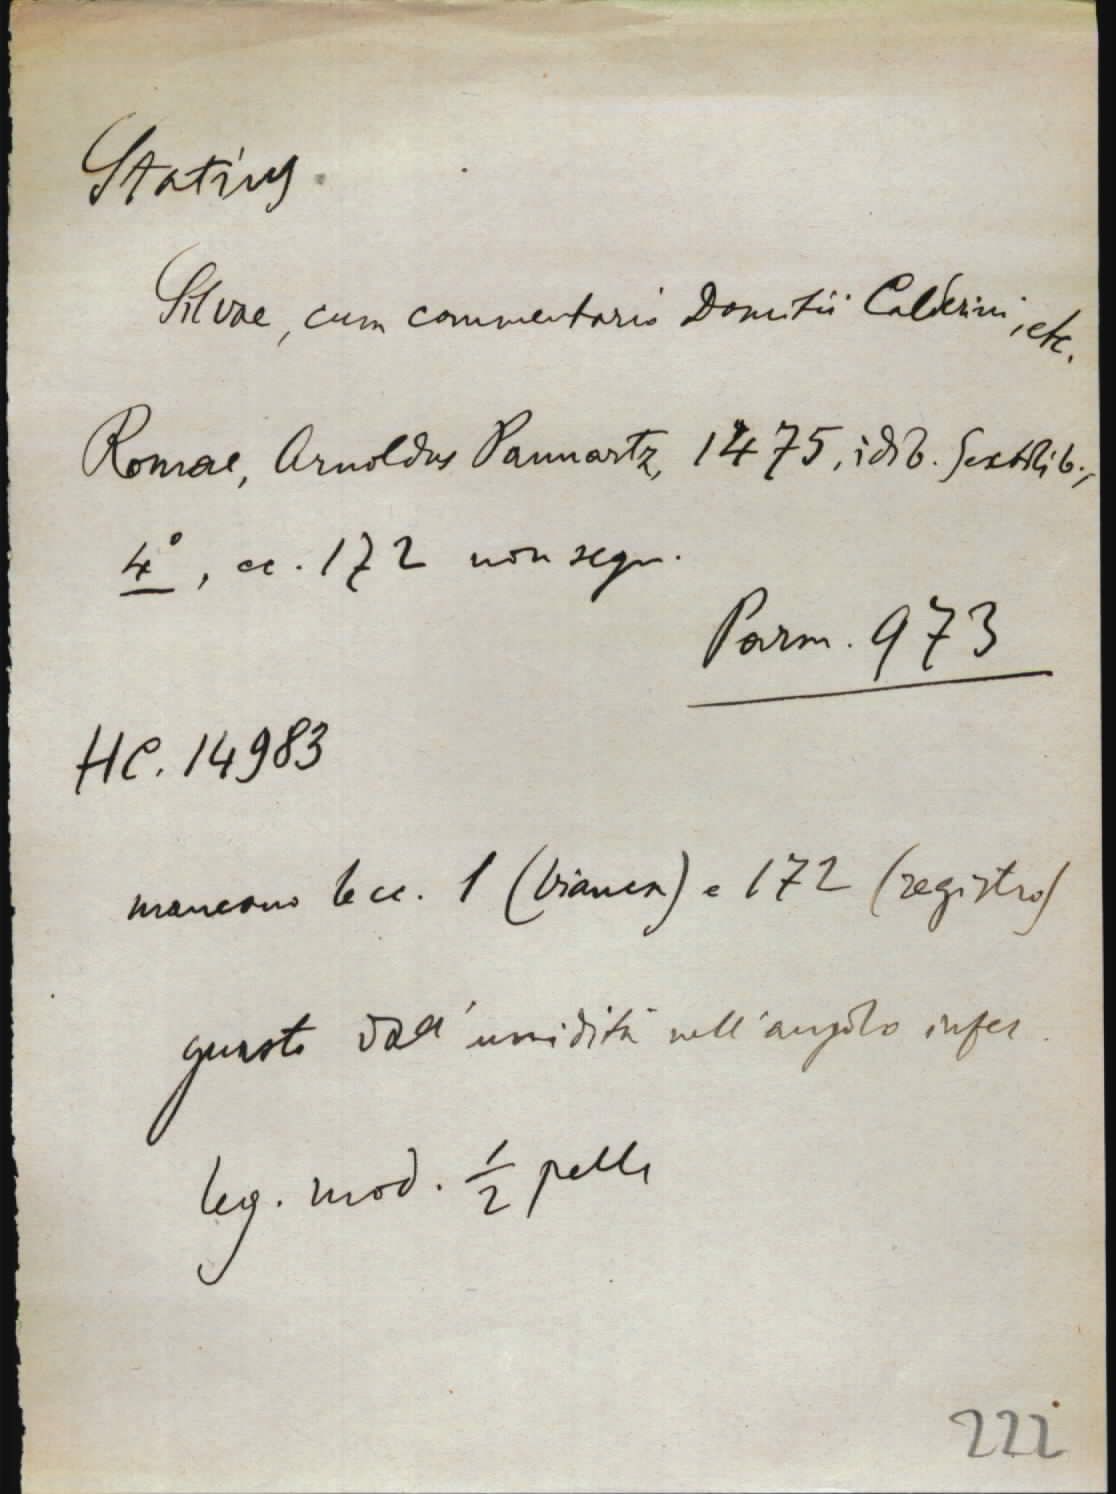 Statius
Silvae, cum commentario Domitii Calderini, etc.
Romae, Arnoldus Pannartz, 1475, idib. Sextilib.,
4°, cc. 172 non segn.
Parm. 973
HC. 14983
mancano le cc. 1 (bianca) e 172 (registro)
guasto dall'umidità nell'angolo infer.
leg. mod. 1/2 pelle
222